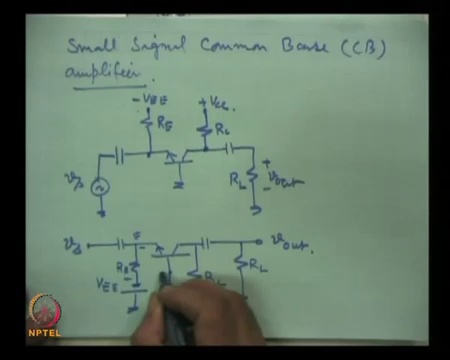 Small Signal Common Base (CB)
amplifier.
-VEE +Vcc
RE Rc
vs RL + vout -
vs E - vout.
RE RL
VEE
NPTEL